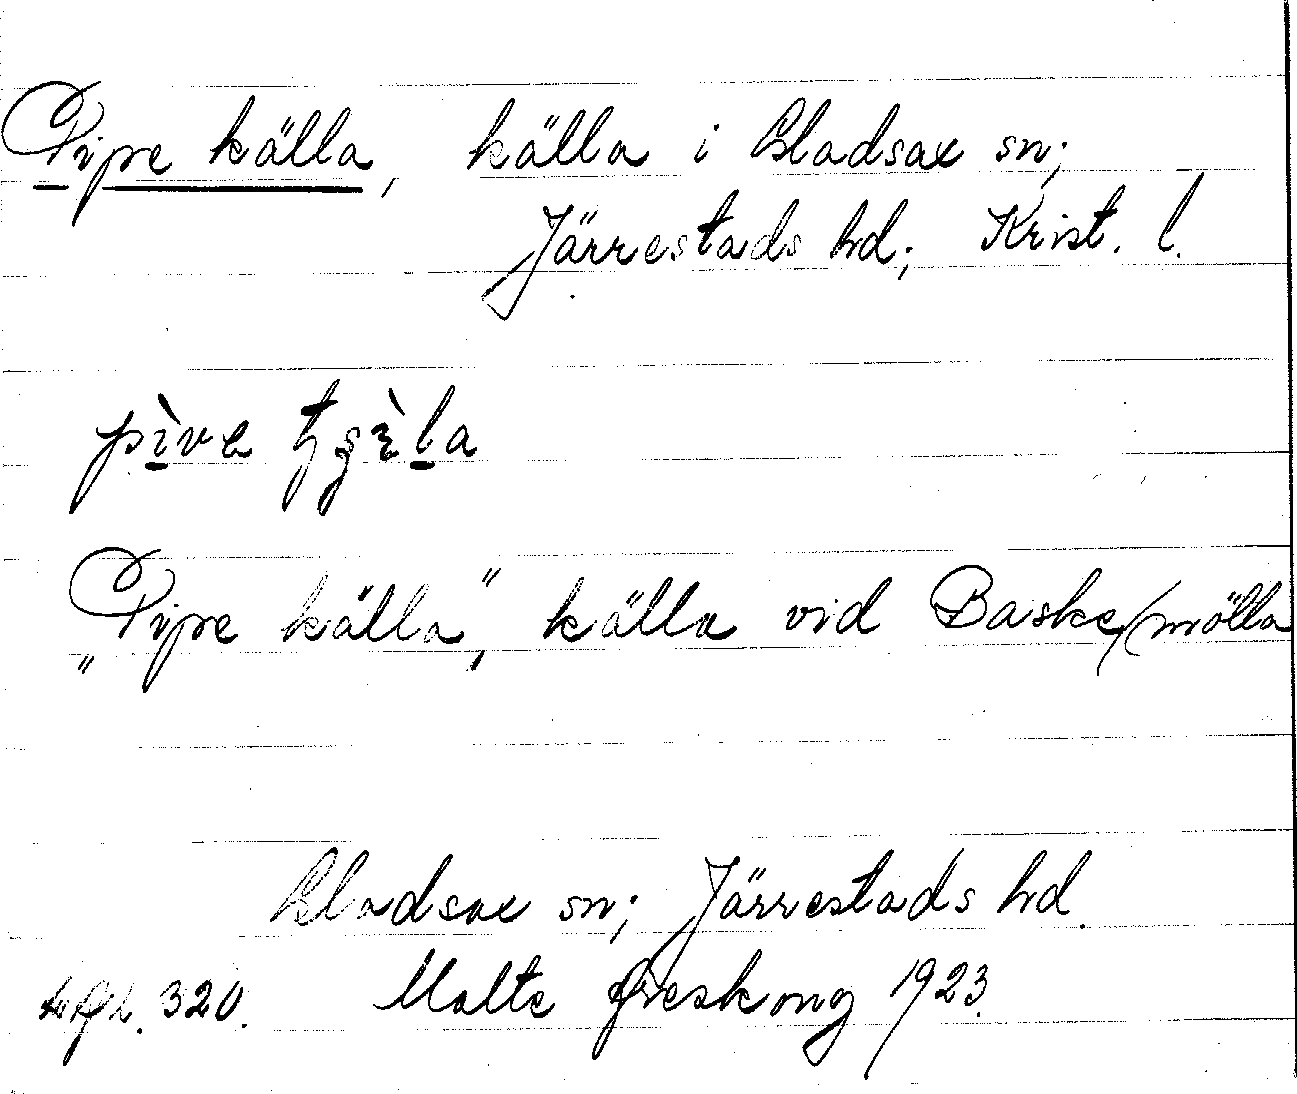 Pipe källa, källa i Gladsax sn;
Järrestads hd; Krist. l.
pìva tʂɛ̀la
"Pipe källa", källa vid Baske/mölla
Gladsax sn; Järrestads hd.
320. Malte 1923.